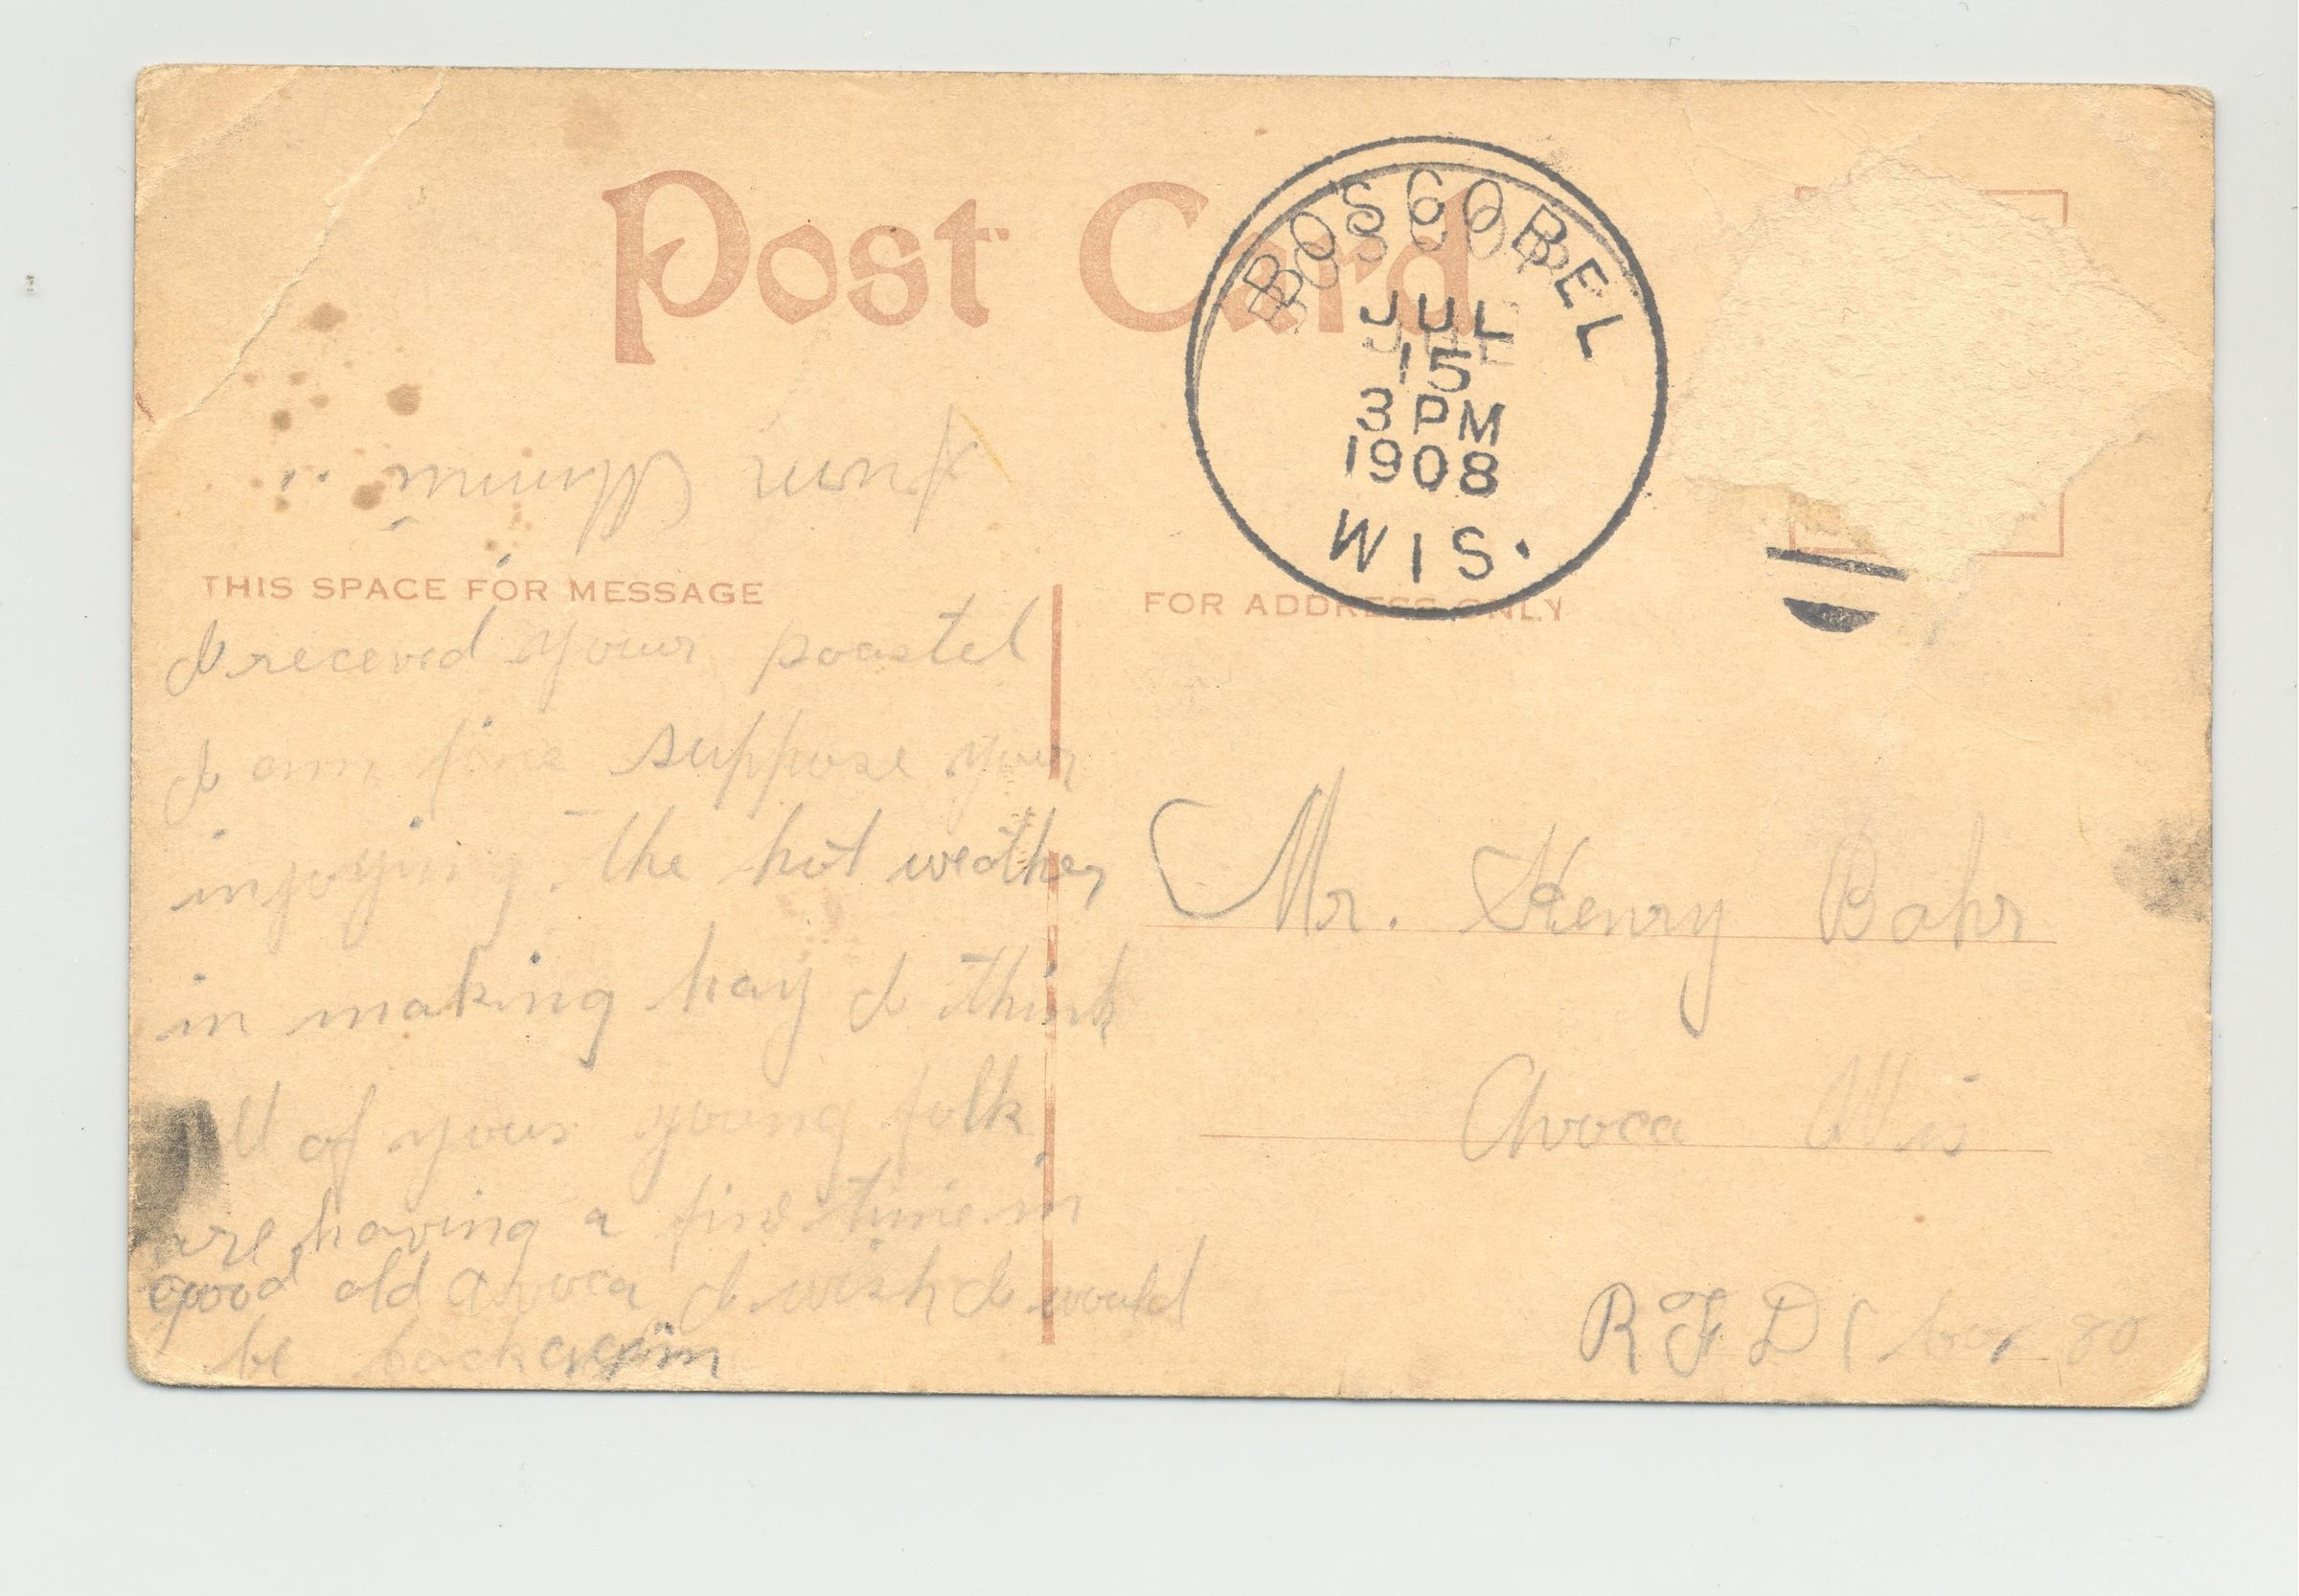 Post Card
BOSCOBEL
JUL
15
3 PM
1908
WIS.
from
THIS SPACE FOR MESSAGE
FOR ADDRESS ONLY
I receved your poastel
I am fine suppose your
injoying the hot weather
in making hay I think
all of your young folk
are having a fine time in
good old Avoca I wish I would
be back again
Mr. Henry Bahr
Avoca Wis
R F D 1 box 80